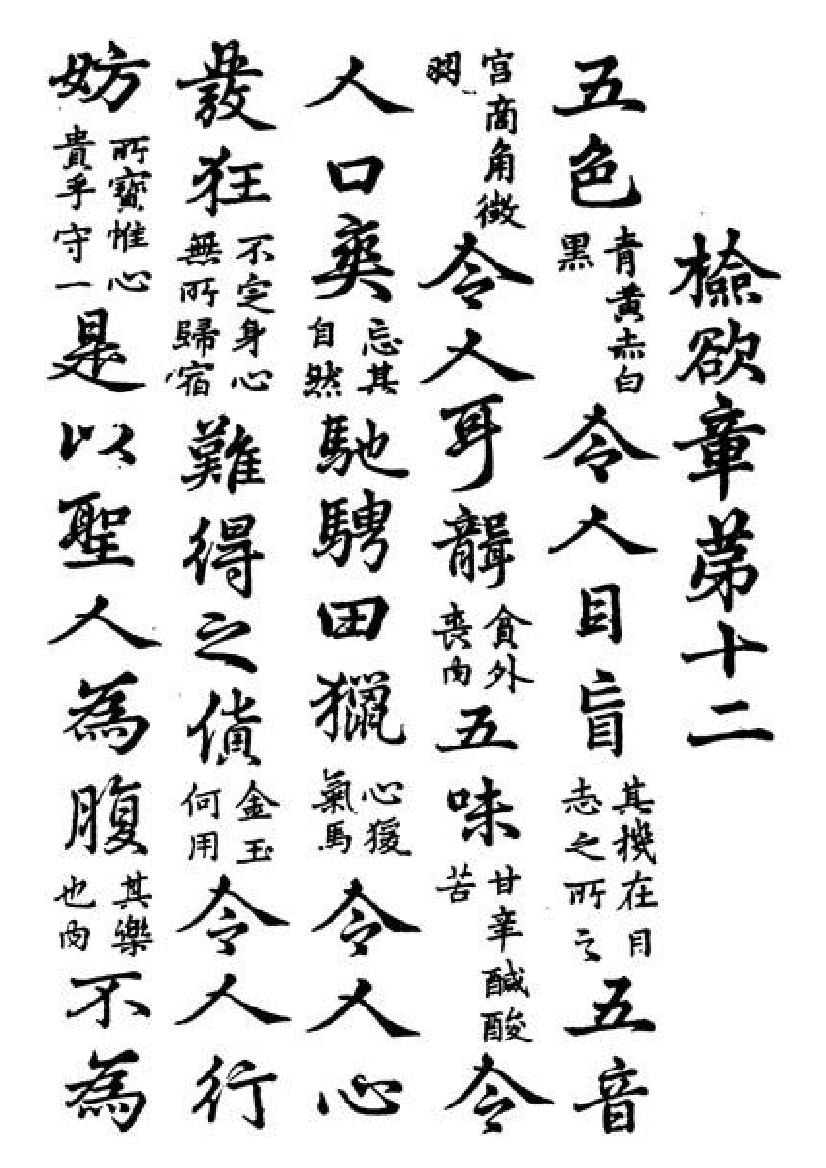 檢欲章苐十二
五色青黃赤白黑令人目盲其機在目志之所之五音
宫商角徵羽令人耳聾貪外喪内五味甘辛醎酸苦令
人口爽忘其自然馳騁田獵心猨氣馬令人心
發狂不定身心無所歸宿難得之貨金玉何用令人行
妨所寶惟心貴乎守一是以聖人為腹其樂也内不為